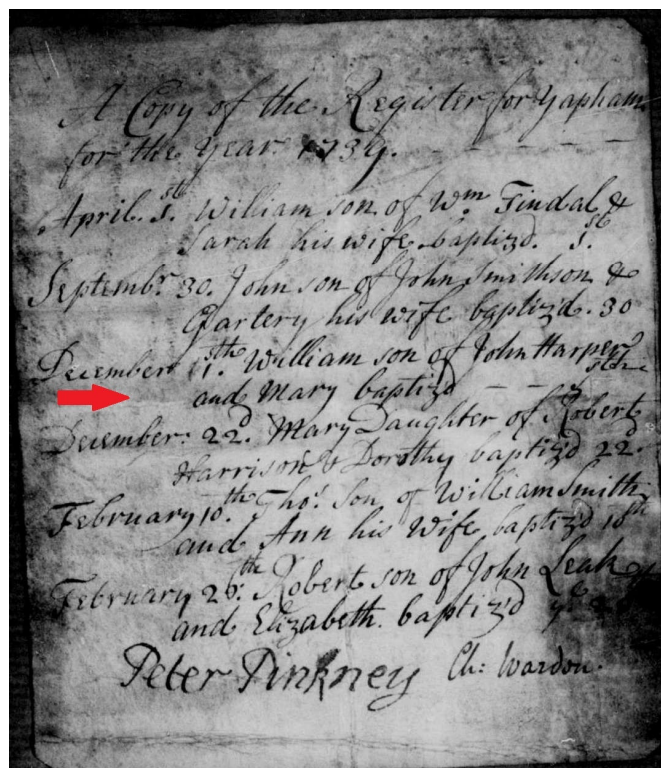 A Copy of the Register for Yapham
for the Year 1739.
April. 1st. William son of Wm Findal &
Sarah his wife baptizd. 1st.
Septembr 30. John son of John Smithson &
his wife baptizd. 30
December 11th. William son of John Harper
and Mary baptizd
December: 22d. Mary Daughter of Robert
Harrison & Dorothy baptizd 22d.
February 10th. Tho: son of William Smith
and Ann his Wife baptizd 10th
February 20th. Robert son of John Leak
and Elizabeth. baptiz'd ye
Peter Pinkney Ch: Wardon.